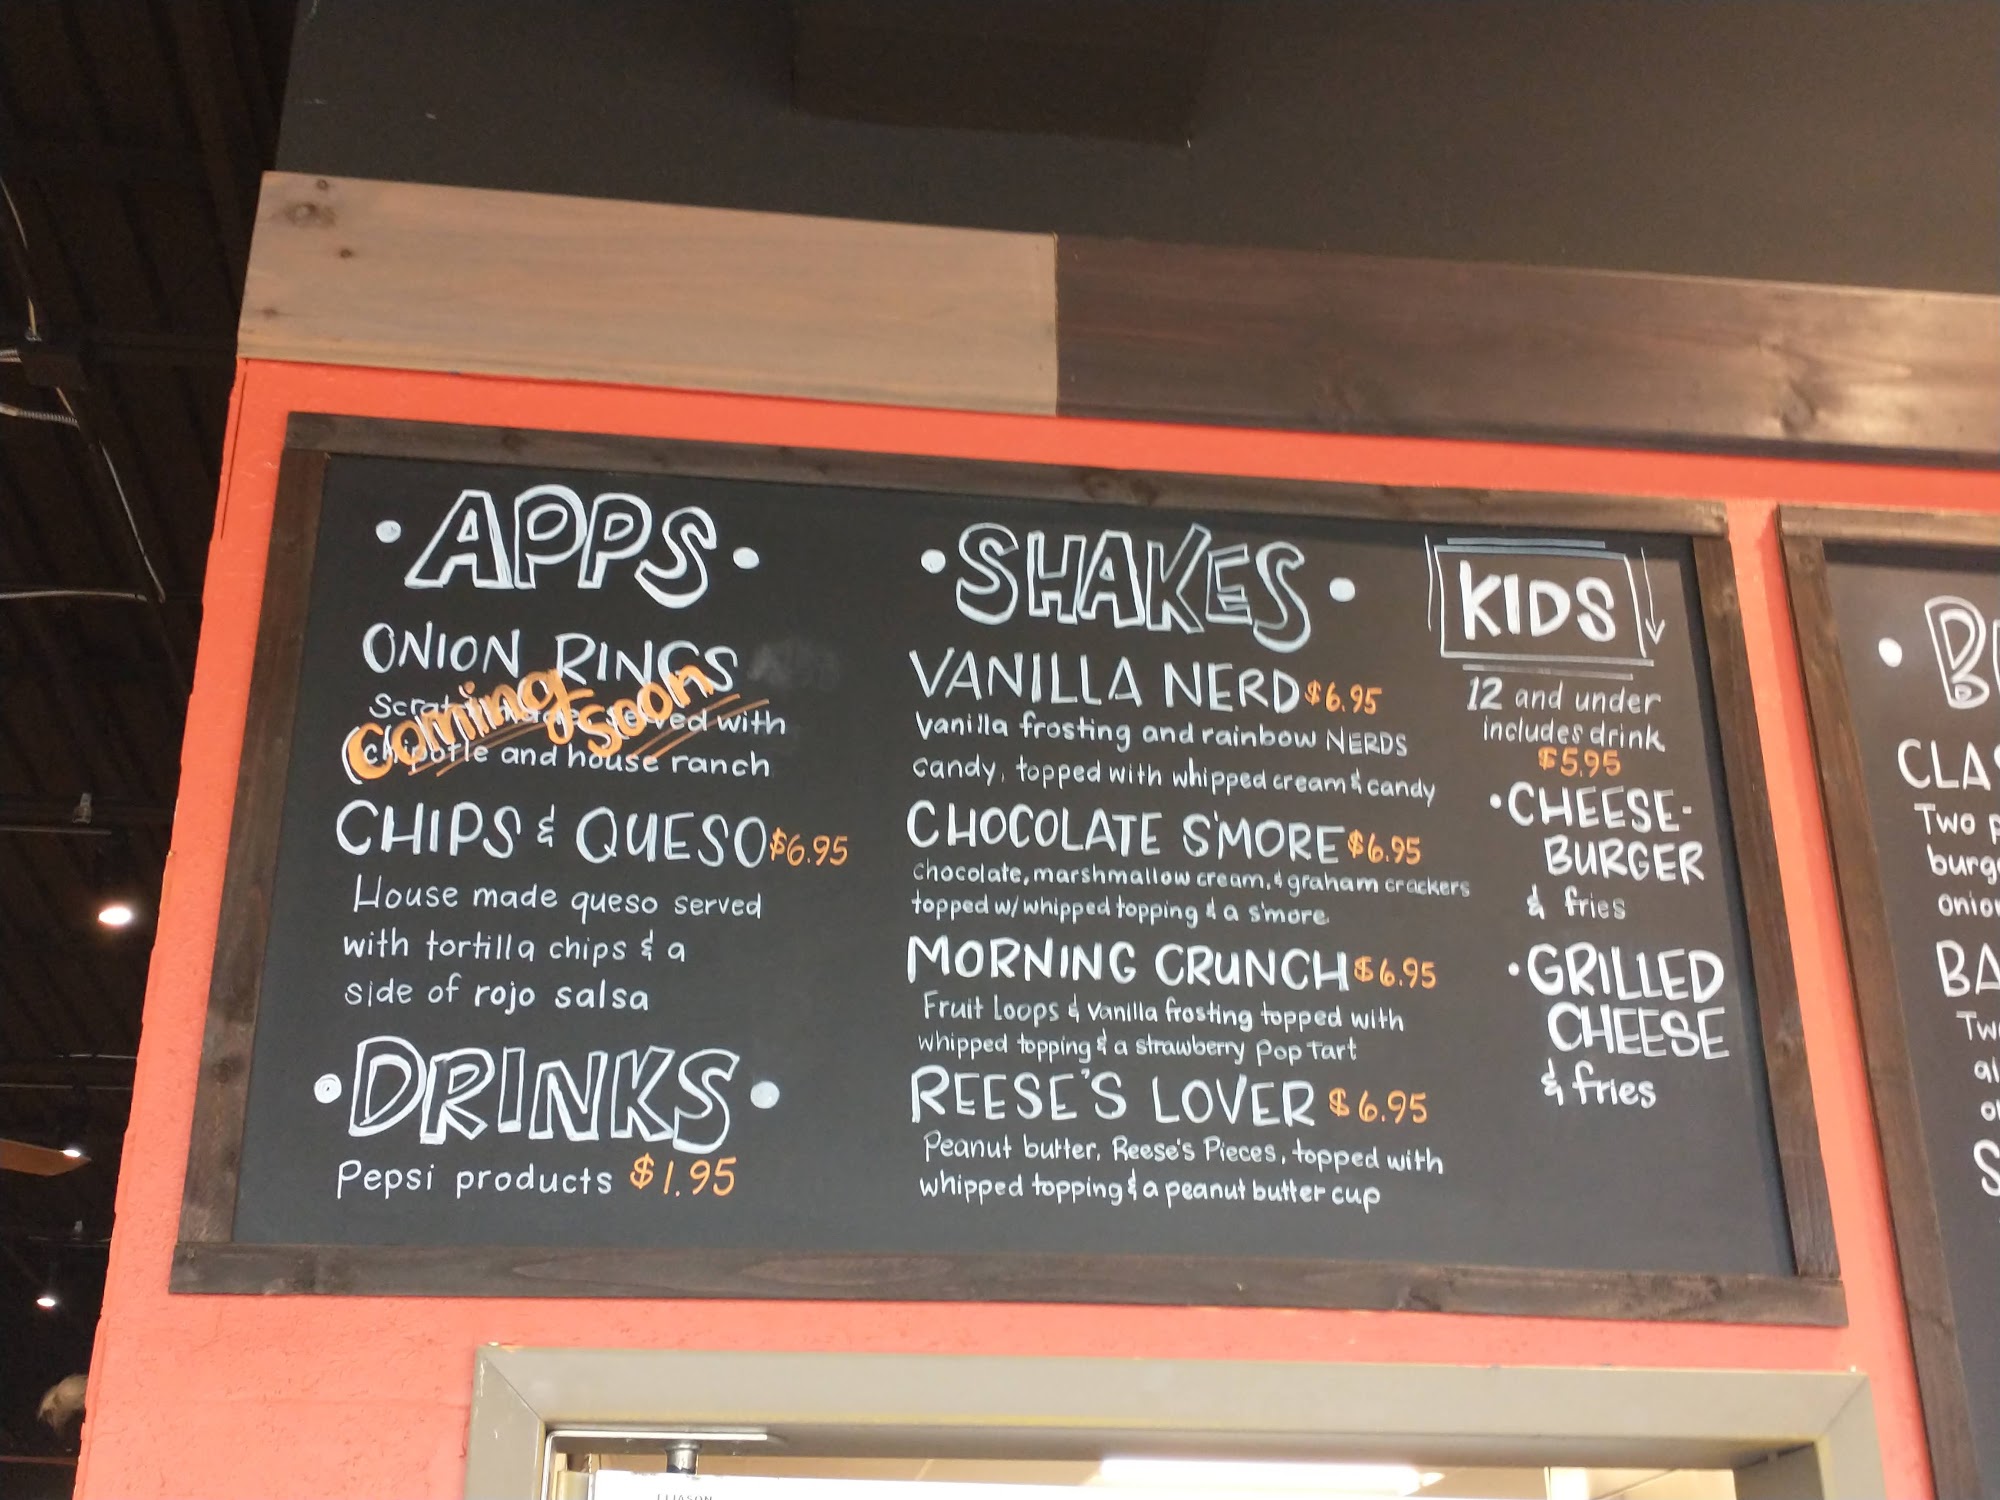 • APPS •
ONION RINGS
coming soon
served with
chipotle and house ranch
CHIPS & QUESO $6.95
House made queso served
with tortilla chips & a
side of rojo salsa
• DRINKS •
Pepsi products $1.95
• SHAKES •
VANILLA NERD $6.95
Vanilla frosting and rainbow NERDS
candy, topped with whipped cream & candy
CHOCOLATE S'MORE $6.95
chocolate, marshmallow cream, & graham crackers
topped w/ whipped topping & a s'more.
MORNING CRUNCH $6.95
Fruit Loops & Vanilla frosting topped with
whipped topping & a strawberry Pop Tart
REESE'S LOVER $6.95
Peanut butter, Reese's Pieces, topped with
whipped topping & a peanut butter cup
KIDS
12 and under
includes drink
$5.95
• CHEESE-
BURGER
& fries
• GRILLED
CHEESE
& fries
ELIASON